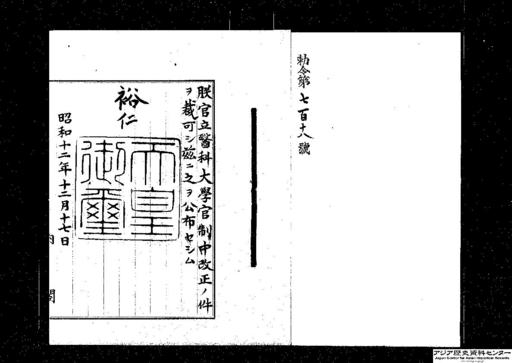 勅令第七百十八號
朕官立醫科大學官制中改正ノ件
ヲ裁可シ茲ニ之ヲ公布セシム
裕仁
天皇
御璽
昭和十二年十二月十七日
内閣
アジア歴史資料センター
Japan Center for Asian Historical Records